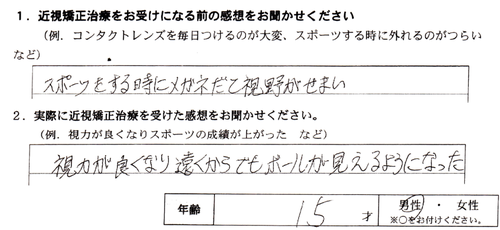 1．近視矯正治療をお受けになる前の感想をお聞かせください
（例．コンタクトレンズを毎日つけるのが大変、スポーツする時に外れるのがつらい
など）
スポーツをする時にメガネだと視野がせまい
2．実際に近視矯正治療を受けた感想をお聞かせください。
（例．視力が良くなりスポーツの成績が上がった　など）
視力が良くなり遠くからでもボールが見えるようになった
年齢　15　才　男性　・　女性
※○をお付けください。